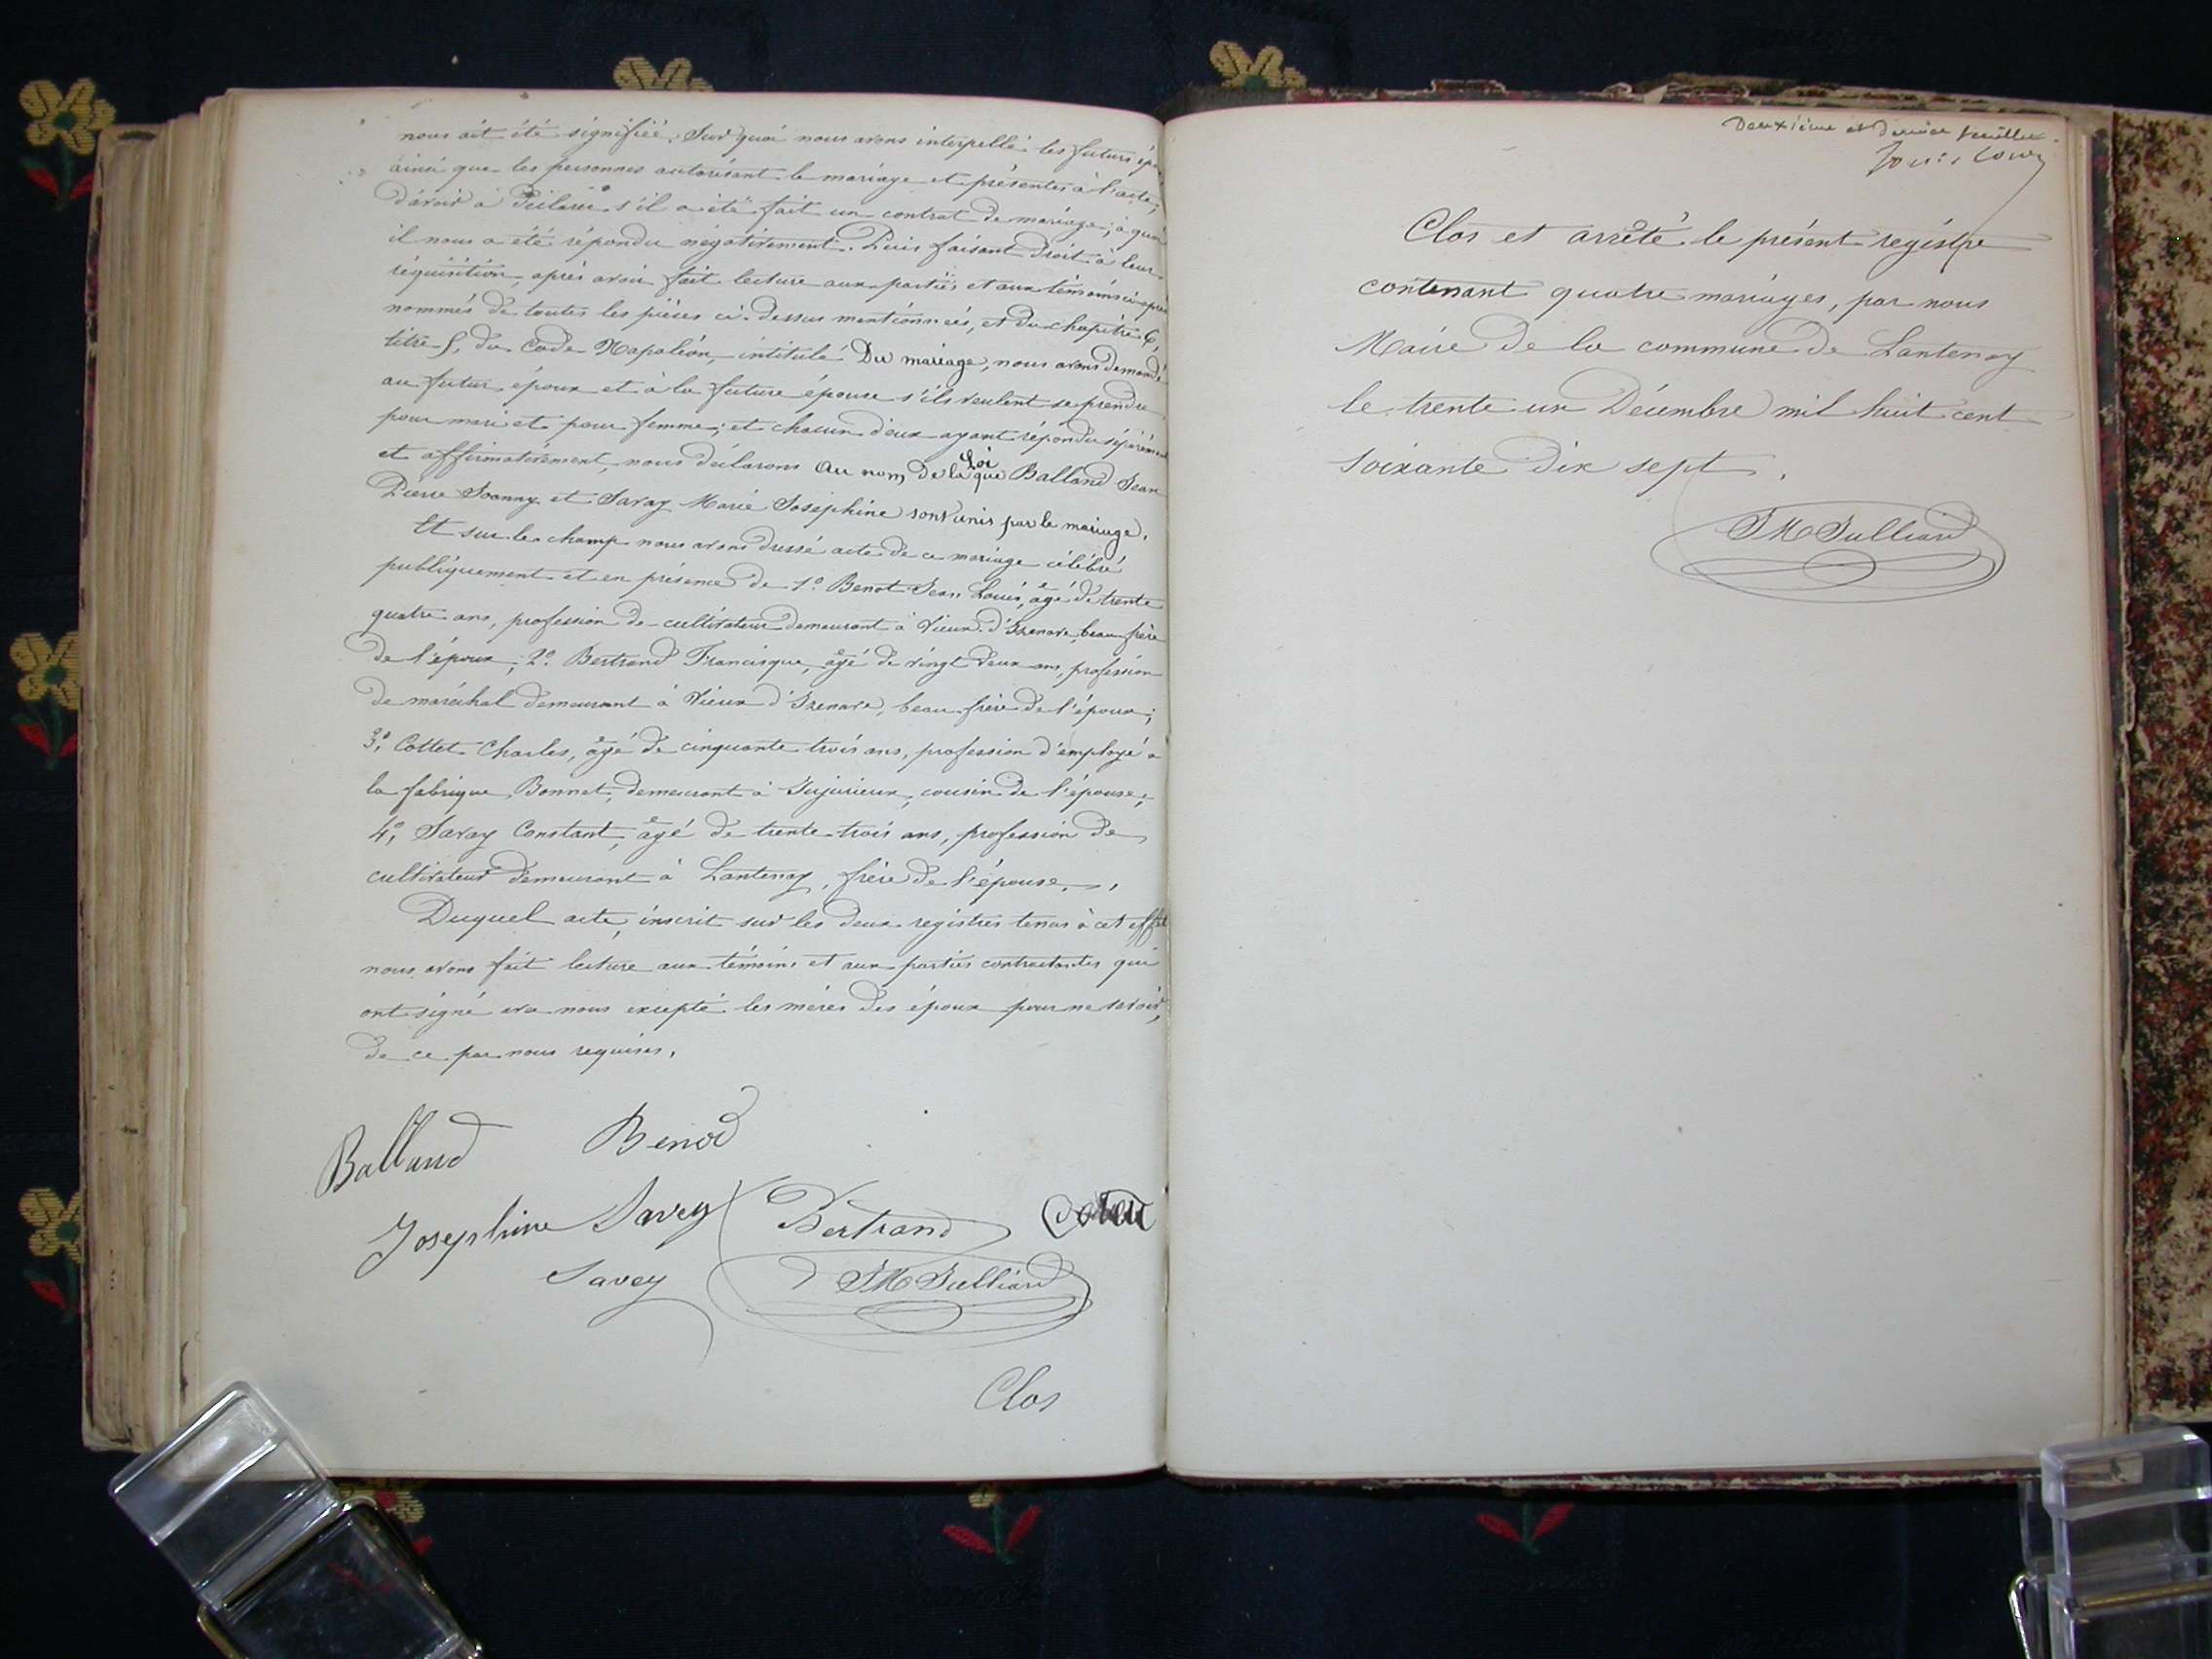 nous ait été signifiée. Sur quoi nous avons interpellé les futurs
ainsi que les personnes autorisant le mariage et présentes à l'acte,
d'avoir à déclarer s'il a été fait un contrat de mariage; à quoi
il nous a été répondu négativement. Puis faisant droit à leur
réquisition, après avoir fait lecture aux parties et aux témoins ci-après
nommés de toutes les pièces ci-dessus mentionnées, et du chapitre 6,
titre 5, du Code Napoléon, intitulé Du mariage, nous avons demandé
au futur époux et à la future épouse s'ils veulent se prendre
pour mari et pour femme; et chacun d'eux ayant répondu séparément
et affirmativement nous déclarons au nom de la Loi que Balland Jean
Pierre Joanny et Savay Marie Joséphine sont unis par le mariage.
Et sur le champ nous avons dressé acte de ce mariage célébré
publiquement et en présence de 1º Benot Jean Louis, âgé de trente
quatre ans, profession de cultivateur demeurant à Vieux-d'Izenave, beau frère
de l'époux; 2º Bertrand Francisque, âgé de vingt deux ans, profession
de maréchal demeurant à Vieux d'Izenave, beau-frère de l'époux;
3º, Cottet Charles, âgé de cinquante trois ans, profession d'employé à
la fabrique Bonnet, demeurant à Jujurieux, cousin de l'épouse;
4º, Savay Constant, âgé de trente-trois ans, profession de
cultivateur demeurant à Lantenay, frère de l'épouse.
Duquel acte, inscrit sur les deux registres tenus à cet effet
nous avons fait lecture aux témoins et aux parties contractantes qui
ont signé avec nous excepté les mères des époux pour ne savoir,
de ce par nous requises.
Balland Benod
Josephine Savey Bertrand
Savey JM Julliard
Clos
Deuxième et dernier feuillet.
Clos et arrêté le présent registre
contenant quatre mariages, par nous
Maire de la commune de Lantenay
le trente un Décembre mil huit cent
soixante dix sept.
JM Julliard